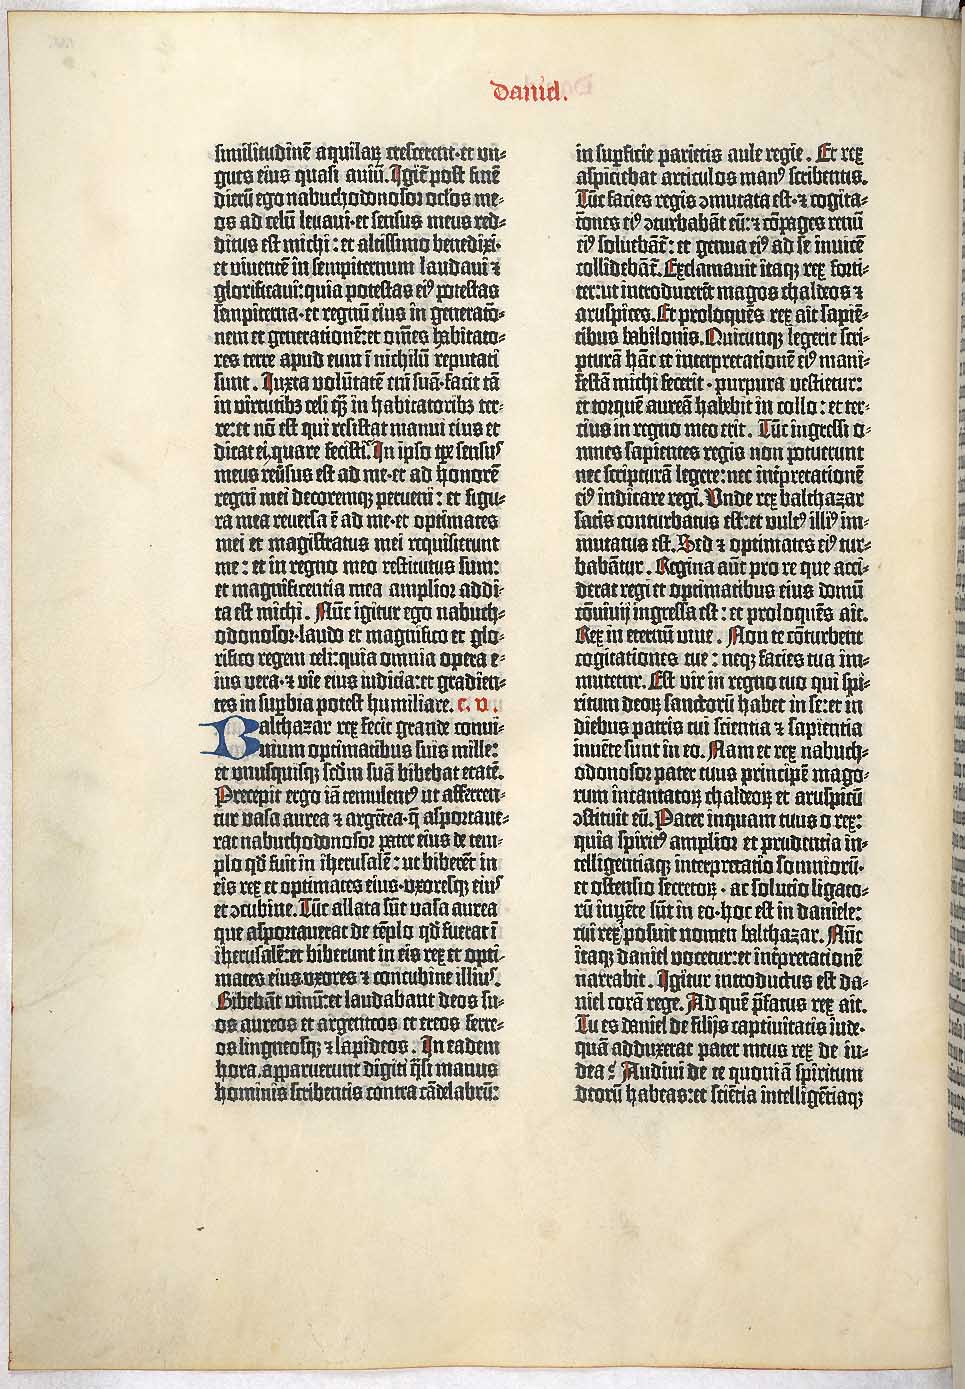 Daniel.
similitudinē aquilaꝝ crescerent·et vn-
gues eius quasi auiū. Igit̄ post finē
dierū ego nabuchodonosor oc̄los me-
os ad celū leuaui·et sensus meus red-
ditus est michi: et altissimo benedixi·
et viuentē in sempiternum laudaui ⁊
glorificaui: quia potestas eiꝰ potestas
sempiterna·et regnū eius in generatō-
nem et generationē: et om̄es habitato-
res terre apud eum ī nichilū reputati
sunt. Iuxta volūtatē em̄ suā·facit tā
in virtutibꝫ celi q̄ȝ in habitatoribꝫ ter-
re: et nō est qui resistat manui eius et
dicat ei, quare fecisti? In ipso tp̄r sensuꝰ
meus reūsus est ad me·et ad honorē
regni mei decoremqꝫ perueni: et figu-
ra mea reuersa ē ad me·et optimates
mei et magistratus mei requisierunt
me: et in regno meo restitutus sum:
et magnificentia mea amplior addi-
ta est michi. Nūc igitur ego nabuch-
odonosor·laudo et magnifico et glo-
rifico regem celi: quia omnia opera e-
ius vera·⁊ vie eius iudicia: et gradien-
tes in suꝑbia potest humiliare. c. v.
Balthazar rex fecit grande conui-
uium optimatibus suis mille:
et vnusquisqꝫ scd̄m suā bibebat etatē.
Precepit ergo iā temulentꝰ ut afferren-
tur vasa aurea ⁊ argētea·q̄ asportaue-
rat nabuchodonosor pater eius de tem-
plo qd̄ fuit in iherusalē: ut biberēt in
eis rex et optimates eius·vxoresqꝫ eiuꝰ
et ꝯcubine. Tūc allata sūt vasa aurea
que asportauerat de tēplo qd̄ fuerat ī
iherusalē: et biberunt in eis rex et opti-
mates eius vxores ⁊ concubine illiuꝰ.
Bibebāt vinū: et laudabant deos su-
os aureos et argenteos et ereos ferre-
os ligneosqꝫ ⁊ lapideos. In eadem
hora·apparuerunt digiti q̄si manus
hominis scribentis contra cādelabrū:
in suꝑficie parietis aule regie. Et rex
aspiciebat articulos manꝰ scribentis.
Tūc facies regis ꝯmutata est·⁊ cogita-
tōnes eiꝰ ꝯturbabāt eū: ⁊ cōpages renū
eiꝰ soluebāt: et genua eiꝰ ad se inuicē
collidebāt̄. Exclamauit itaqꝫ rex forti-
ter: ut introducerēt magos chaldeos ⁊
aruspices. Et proloquēs rex ait sapiē-
tibus babilonis. Quicunqꝫ legerit scri-
pturā hāc et interpretationē eiꝰ mani-
festā michi fecerit·purpura vestietur:
et torquē aureā habebit in collo: et ter-
cius in regno meo erit. Tūc ingressi o-
mnes sapientes regis non potuerunt
nec scripturā legere: nec int̄pretationē
eiꝰ indicare regi. Vnde rex balthazar
satis conturbatus est: et vultꝰ illiꝰ im-
mutatus est. Sed ⁊ optimates eiꝰ tur-
babātur. Regina aūt pro re que acci-
derat regi et optimatibus eius domū
cōuiuij ingressa est: et proloquēs ait.
Rex in eternū viue. Non te cōturbent
cogitationes tue: neqꝫ facies tua im-
mutetur. Est vir in regno tuo qui spi-
ritum deoꝝ sanctorū habet in se: et in
diebus patris tui scientia ⁊ sapientia
inuēte sunt in eo. Nam et rex nabuch-
odonosor pater tuus principē mago-
rum incantatoꝝ chaldeoꝝ et aruspicū
ꝯstituit eū. Pater inquam tuus o rex:
quia spiritꝰ amplior et prudentia in-
telligentiaqꝫ interpretatio somniorū·
et ostensio secretoꝝ·ac solucio ligato-
rū inuēte sūt in eo·hoc est in daniele:
cui rex posuit nomen balthazar. Nūc
itaqꝫ daniel vocetur: et int̄pretationē
narrabit. Igitur introductus est da-
niel corā rege. Ad quē p̄fatus rex ait.
Tu es daniel de filijs captiuitatis iude·
quā adduxerat pater meus rex de iu-
dea? Audiui de te quoniā spiritum
deorū habeas: et sciētia intelligētiaqꝫ